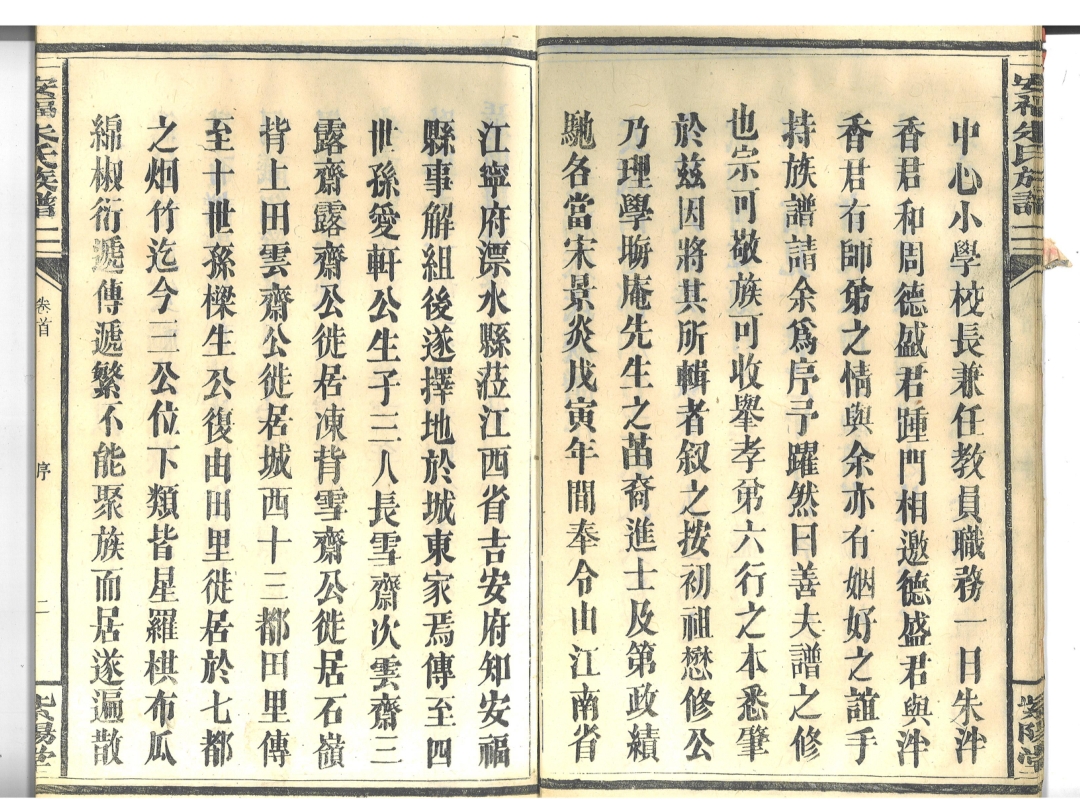 安福朱氏族譜
紫陽堂
中心小學校長兼任教員職務一日朱泮
香君和周德盛君踵門相邀德盛君與泮
香君有師弟之情與余亦有姻好之誼手
持族譜請余爲序予躍然曰善夫譜之修
也宗可敬族可收舉孝弟六行之本悉肇
於茲因將其所輯者叙之按初祖懋修公
乃理學晦庵先生之苗裔進士及第政績
馳名當宋景炎戊寅年間奉令由江南省
江寧府漂水縣蒞江西省吉安府知安福
縣事解組後遂擇地於城東家焉傳至四
世孫愛軒公生子三人長雪齋次雲齋三
露齋露齋公徙居凍背雪齋公徙居石嶺
背上田雲齋公徙居城西十三都田里傳
至十世孫樑生公復由田里徙居於七都
之烟竹迄今三公位下類皆星羅棋布瓜
綿椒衍遞傳遞繁不能聚族而居遂遍散
安福朱氏族譜
卷首
序
二
紫陽堂